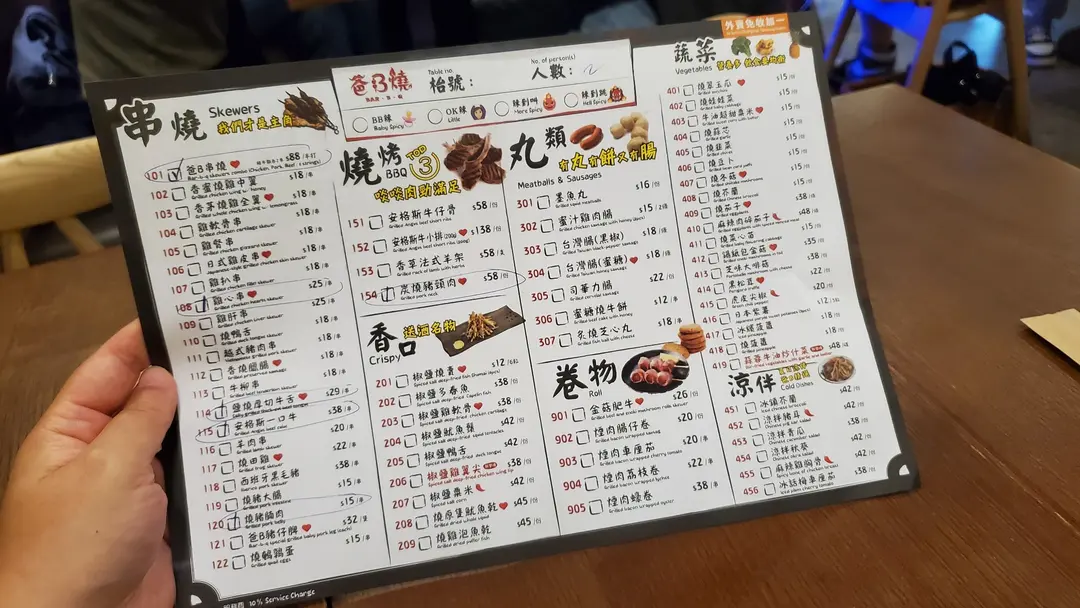 外賣免收加一
爸B燒
BAR · B · Q
Table no.
枱號：
No. of person(s)
人數：
2
BB辣
Baby Spicy
OK辣
Little
辣到嘩
More Spicy
辣到跳
Hell Spicy
串燒
Skewers
我們才是主角
101 爸B串燒 $88
102 香蜜燒雞中翼 $18
Grilled chicken wing w. honey
103 香茅燒雞全翼 $18
Grilled whole chicken wing w. lemongrass
104 雞軟骨串 $18
Grilled chicken cartilage skewer
105 雞腎串 $18
Grilled chicken gizzard skewer
106 日式雞皮串 $18
Japanese-style grilled chicken skin skewer
107 雞扒串 $18
Grilled chicken fillet skewer
108 雞心串 $25
Grilled chicken hearts skewer
109 雞肝串 $25
Grilled chicken liver skewer
110 燒鴨舌
Grilled duck tongue skewer
111 越式豬肉串 $18
Vietnamese grilled pork skewer
112 $18
Grilled preserved sausage
113 牛柳串
Grilled beef tenderloin skewer
114 鹽燒厚切牛舌 $29
115 安格斯一口牛 $38
Grilled Angus beef cube
116 羊肉串 $20
Grilled lamb skewer
117 燒田雞 $22
Grilled frog skewer
118 西班牙黑毛豬 $38
Iberico pork skewer
119 燒豬大腸
Grilled pork intestine
120 燒豬腩肉 $15
Grilled pork belly
121 爸B豬仔髀 $32
Bar-b-q special grilled baby pork leg (each)
122 燒鵪鶉蛋 $15
Grilled quail eggs
10% Service Charge
燒烤
BBQ
TOP 3
啖啖肉勁滿足
151 安格斯牛仔骨 $58
Grilled Angus beef short ribs
152 安格斯牛小排 (200g) $138
Grilled Angus beef short ribs (200g)
153 香草法式羊架 $58
Grilled rack of lamb with herbs
154 炭燒豬頸肉 $58
Grilled pork neck
香口
Crispy
送酒名物
201 椒鹽燒賣 $12
202 椒鹽多春魚 $38
Spiced salt deep-fried Capelin fish
203 椒鹽雞軟骨 $38
Spiced salt deep-fried chicken cartilage
204 椒鹽魷魚鬚 $42
Spiced salt deep-fried squid tentacles
205 椒鹽鴨舌 $42
Spiced salt deep-fried duck tongue
206 椒鹽雞翼尖 $38
Spiced salt deep-fried chicken wing tip
207 椒鹽粟米 $42
Spiced salt corn
208 燒原隻魷魚乾 $45
Grilled dried whole squid
209 燒雞泡魚乾 $45
Grilled dried puffer fish
丸類
有丸有餅又有腸
Meatballs & Sausages
301 墨魚丸 $16
Grilled squid meatballs
302 蜜汁雞肉腸 $15
Grilled chicken sausage with honey (2pcs)
303 台灣腸(黑椒) $18
Grilled Taiwan black-pepper sausage
304 台灣腸(蜜糖) $18
Grilled Taiwan honey sausage
305 司華力腸 $20
Grilled cervelat sausage
306 蜜糖燒牛餅 $12
Grilled beef cake with honey
307 炙燒芝心丸 $18
Grilled fish ball with cheese
卷物
Roll
901 金菇肥牛 $26
Grilled beef and enoki mushroom rolls skewer
902 煙肉腸仔卷 $20
Grilled bacon wrapped sausage
903 煙肉車厘茄 $20
Grilled bacon wrapped cherry tomato
904 煙肉荔枝卷 $38
Grilled bacon wrapped lychee
905 煙肉蠔卷 $22
Grilled bacon wrapped oyster
蔬菜
Vegetables
營養多 飲食要均衡
401 燒翠玉瓜 $15
Grilled zucchini
402 燒娃娃菜 $15
Grilled baby cabbage
403 牛油超甜粟米 $15
Grilled sweet corn with butter
404 燒蒜芯 $15
Grilled garlic
405 燒韮菜 $15
Grilled chives
406 燒豆卜 $15
Grilled tofu puffs
407 燒冬菇 $15
Grilled shiitake mushrooms
408 燒芥蘭 $15
Grilled Chinese broccoli
409 燒茄子 $38
Grilled eggplants
410 麻辣肉碎茄子 $48
Grilled eggplants with spiced minced meat
411 燒菜心苗
412 錫紙包金菇 $35
413 芝味大啡菇 $38
Portobello mushroom with cheese
414 黑松茸 $20
415 虎皮尖椒 $20
Green chili pepper
416 日本紫薯 $12
417 冰燒菠蘿 $18
Iced pineapple
418 燒菠蘿 $18
Grilled pineapple
419 蒜蓉牛油炒什菜 $48
Stir-fried vegetables with garlic and butter
涼伴
Cold Dishes
451 冰鎮芥蘭 $42
Iced chinese broccoli
452 涼拌豬耳 $38
453 涼拌青瓜 $42
Chinese cucumber salad
454 涼拌秋葵 $42
Chinese okra salad
455 麻辣雞胸骨 $42
456 冰話梅車厘茄 $38
Iced plum cherry tomato